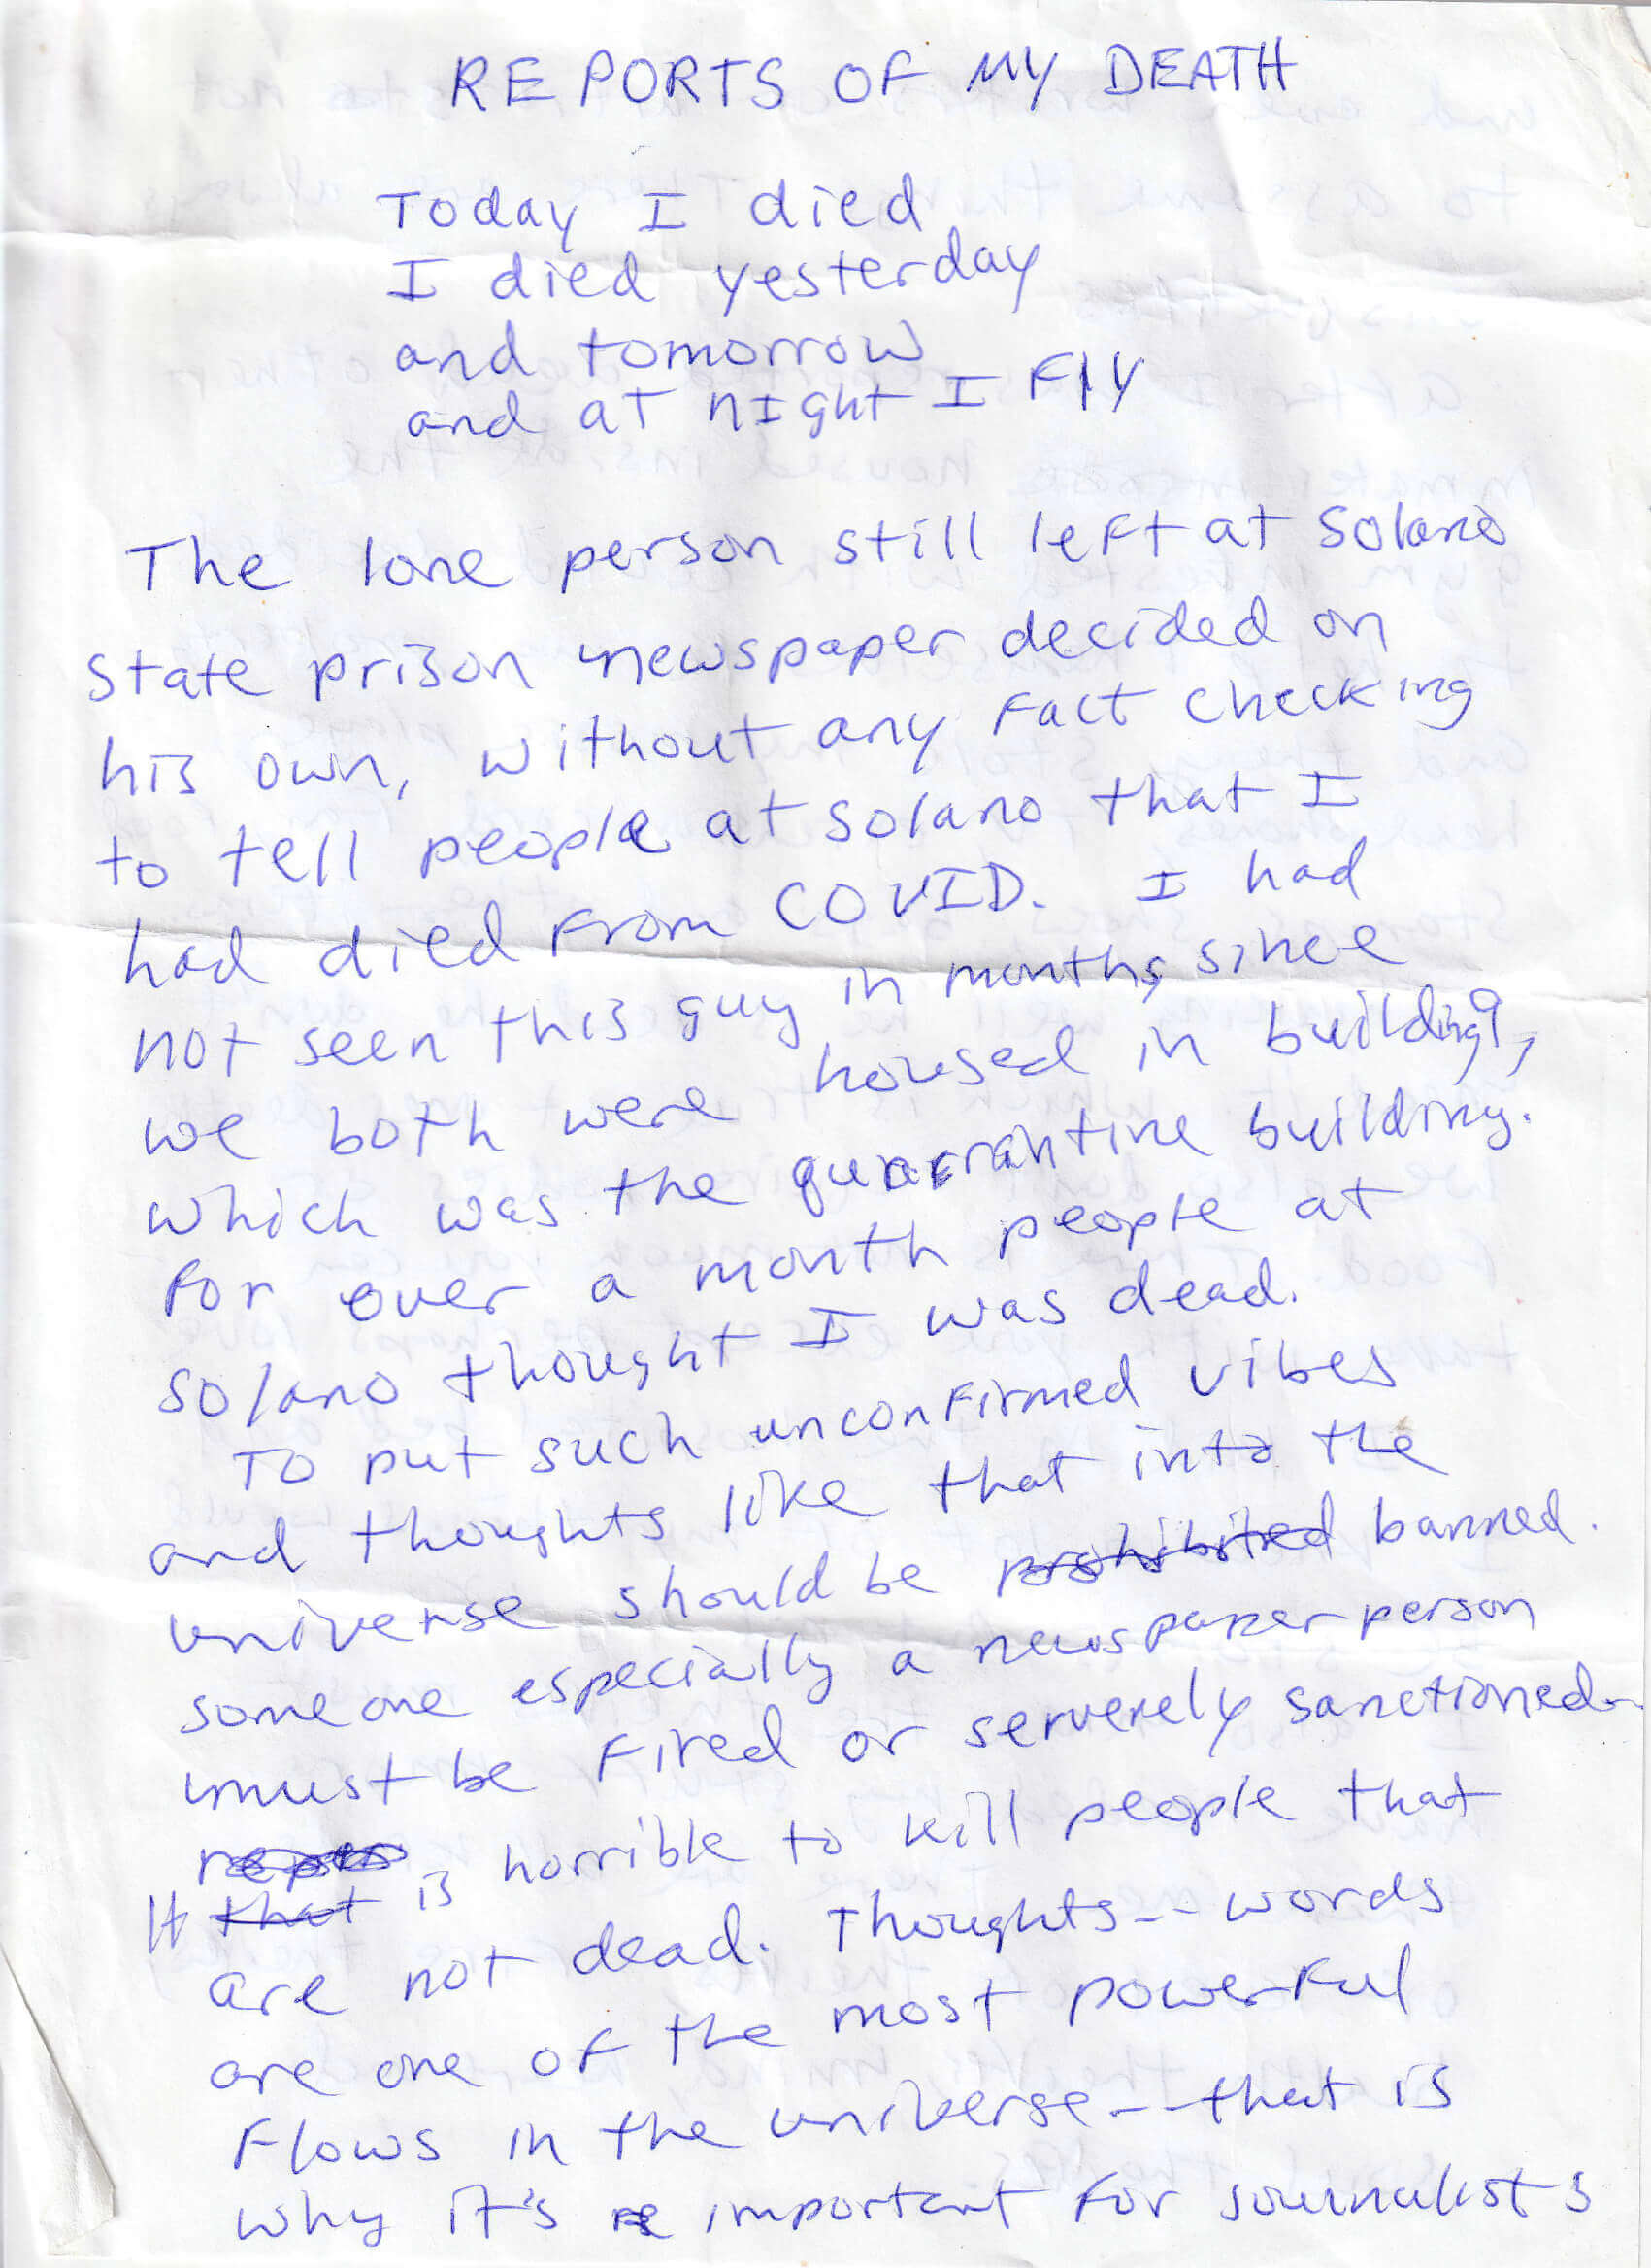 REPORTS OF MY DEATH
Today I died
I died yesterday
and tomorrow
and at night I fly
The lone person still left at Solano
state prison newspaper decided on
his own, without any fact checking
to tell people at Solano that I
had died from COVID. I had
not seen this guy in months, since
we both were housed in building 9,
which was the quarantine building.
For over a month people at
Solano thought I was dead.
To put such unconfirmed vibes
and thoughts like that into the
universe should be prohibited banned.
someone especially a newspaper person
must be fired or serverely sanctioned.
It that is horrible to kill people that
are not dead. Thoughts -- words
are one of the most powerful
flows in the universe -- that is
why it's important for journalists